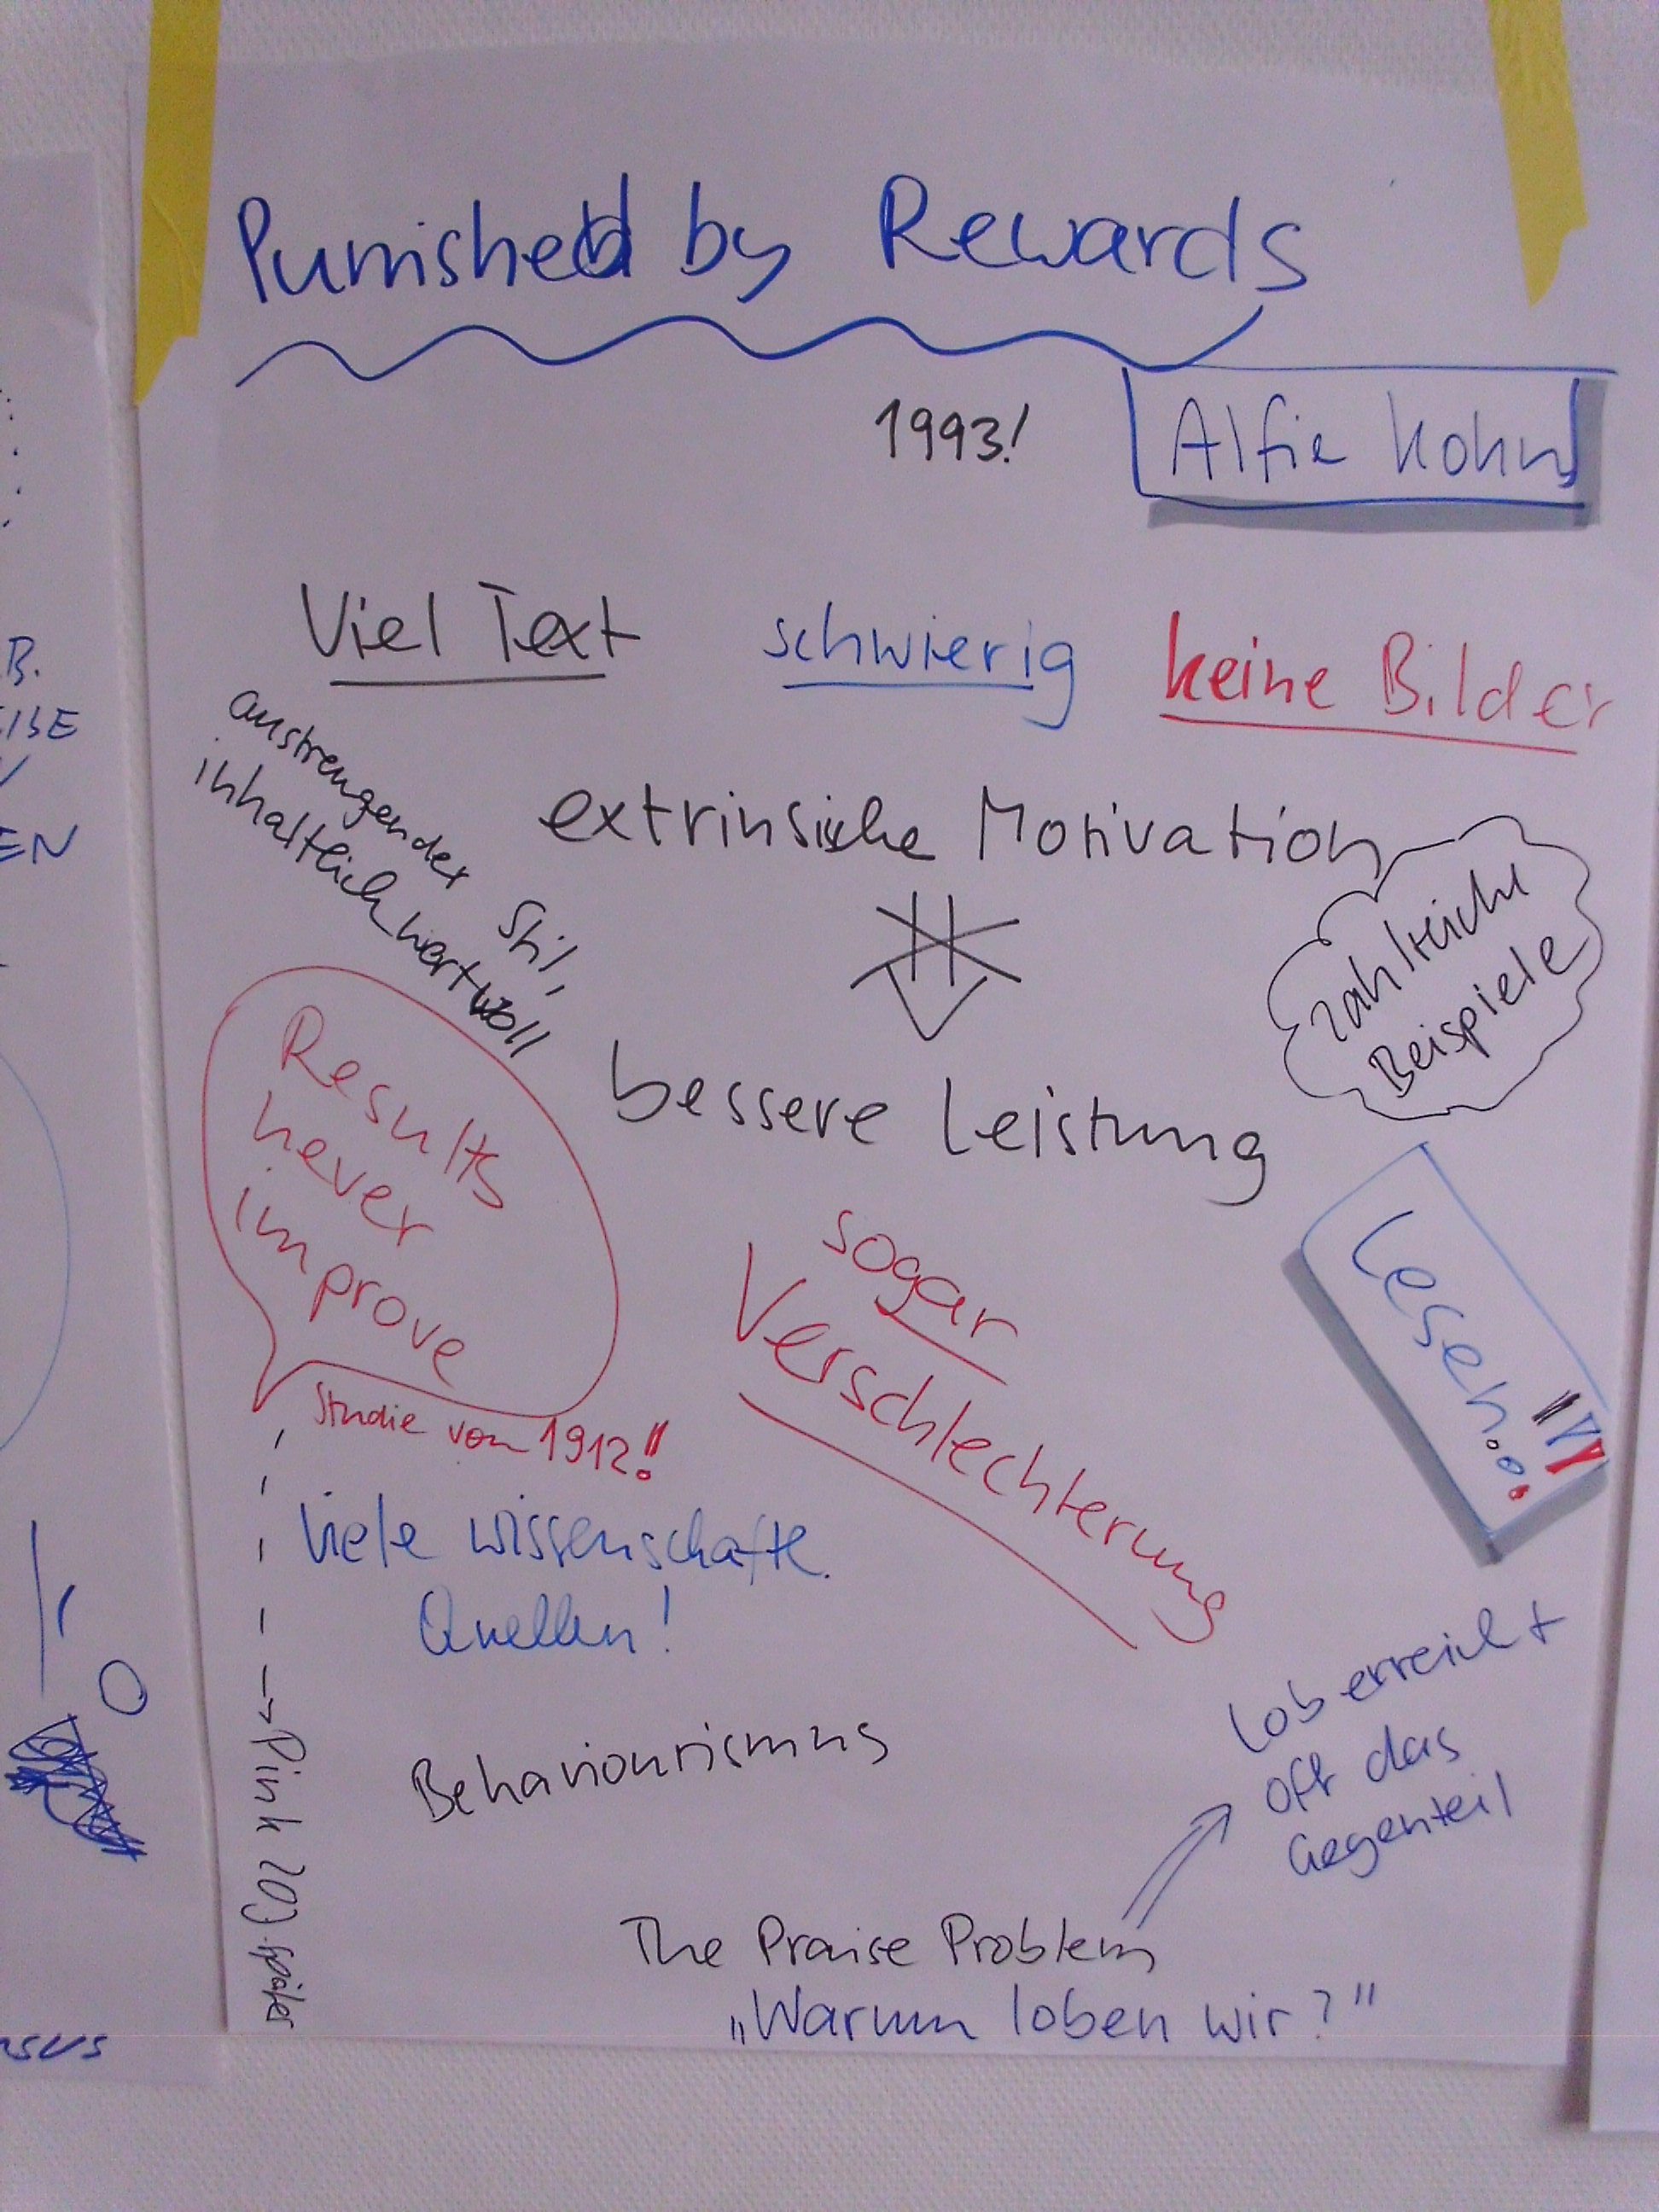 Punished by Rewards
1993!
Alfie Kohn
Viel Text
schwierig
keine Bilder
anstrengender Stil,
inhaltlich wertvoll
extrinsische Motivation
zahlreiche
Beispiele
bessere Leistung
Results
never
improve
Studie von 1912!!
sogar
Verschlechterung
Lesen!!!
viele wissenschaftl.
Quellen!
Behaviourismus
Pink 20J. später
Lob erreicht
oft das
Gegenteil
The Praise Problem
„Warum loben wir?"
B.
EN